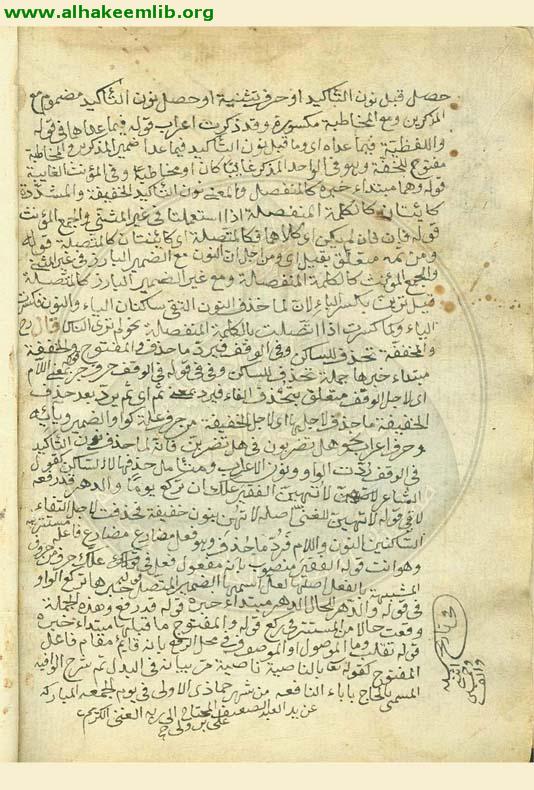 www.alhakeemlib.org
حصل قبل نون التاكيد او حرف تثنية او حصل نون التاكيد مضموم مع
المذكرين ومع المخاطبة مكسورة وقد ذكرت اعراب قوله فيما عداها في قوله
واللفظية فيما عداه اى وما قبل نون التاكيد فيما عدا ضمير المذكرين والمخاطبة
مفتوح للخفة وهو في الواحد المذكر غايبا كان او مخاطبا وفي المؤنث الغايبة
قوله وهما مبتداء خبره كالمنفصل والمعنى نون التاكيد الخفيفة والمشددة
كائنتان كالكلمة المنفصلة اذا استعملتا في غير المثنى والجمع المؤنث
قوله فان لم يكن اى كلاهما فكالمتصلة اى كائنتان كالمتصلة قوله
ومن ثمه متعلق بقيل اى ومن اجل ان النون مع الضمير البارز في غير المثنى
والجمع المؤنث كالكلمة المنفصلة ومع غير الضمير البارز كالمتصلة
قيل ترين بكسر الياء لان لما حذف النون التقى ساكنان الياء والنون فكسرت
الياء وكما كسرت اذا اتصلت بالكلمة المنفصلة نحو لم ترى الناس قال
والمخففة تحذف للساكن وفي الوقف فيرد ما حذف والمفتوح والمخففة
مبتداء خبرها جملة تحذف للساكن وفي في قوله في الوقف حرف جر بمعنى اللام
اى لاجل الوقف متعلق بتحذف الفاء فيرد بمعنى ثم اى ثم يرد بعد حذف
الخفيفة ما حذف لاجلها اى لاجل الخفيفة من حرف علة كواو الضمير ويائه
وحرف اعراب نحو هل تضربون في هل تضربن فانه لما حذف نون التاكيد
في الوقف ردت الواو ونون الاعراب ومثال حذفها لالساكن كقول
الشاعر لا تهين الفقير علك ان تركع يوما والدهر قد رفعه
لا في قوله لا تهين للنهي اصله لا تهينن بنون خفيفة فحذفت لاجل التقاء
الساكنين النون واللام فرد ما حذف وهو فعل مضارع فاعله مستتر فيه
وهو انت قوله الفقير منصوب بانه مفعول فعل في قوله علك حرف من حروف
المشبهة بالفعل اصلها لعل اسمها الضمير المتصل خبرها تركع الواو
في قوله والدهر للحال الدهر مبتداء خبره قوله قد رفع وهذه الجملة
وقعت حالا من المستتر في تركع قوله والمفتوح ما قبلها مبتداء خبره
قوله تقلب وما الموصول او الموصوف في محل الرفع بانه قائم مقام فاعل
المفتوح كقوله تعا بالناصية ناصية مر بيانه في البدل تم شرح الوافيه
المسمى بالحاج بابا النافعه من شهر جماذى الاولى في يوم الجمعه المباركه
عن يد العبد الضعيف المحتاج الى ربه الغنى الكريم
على بن ولى